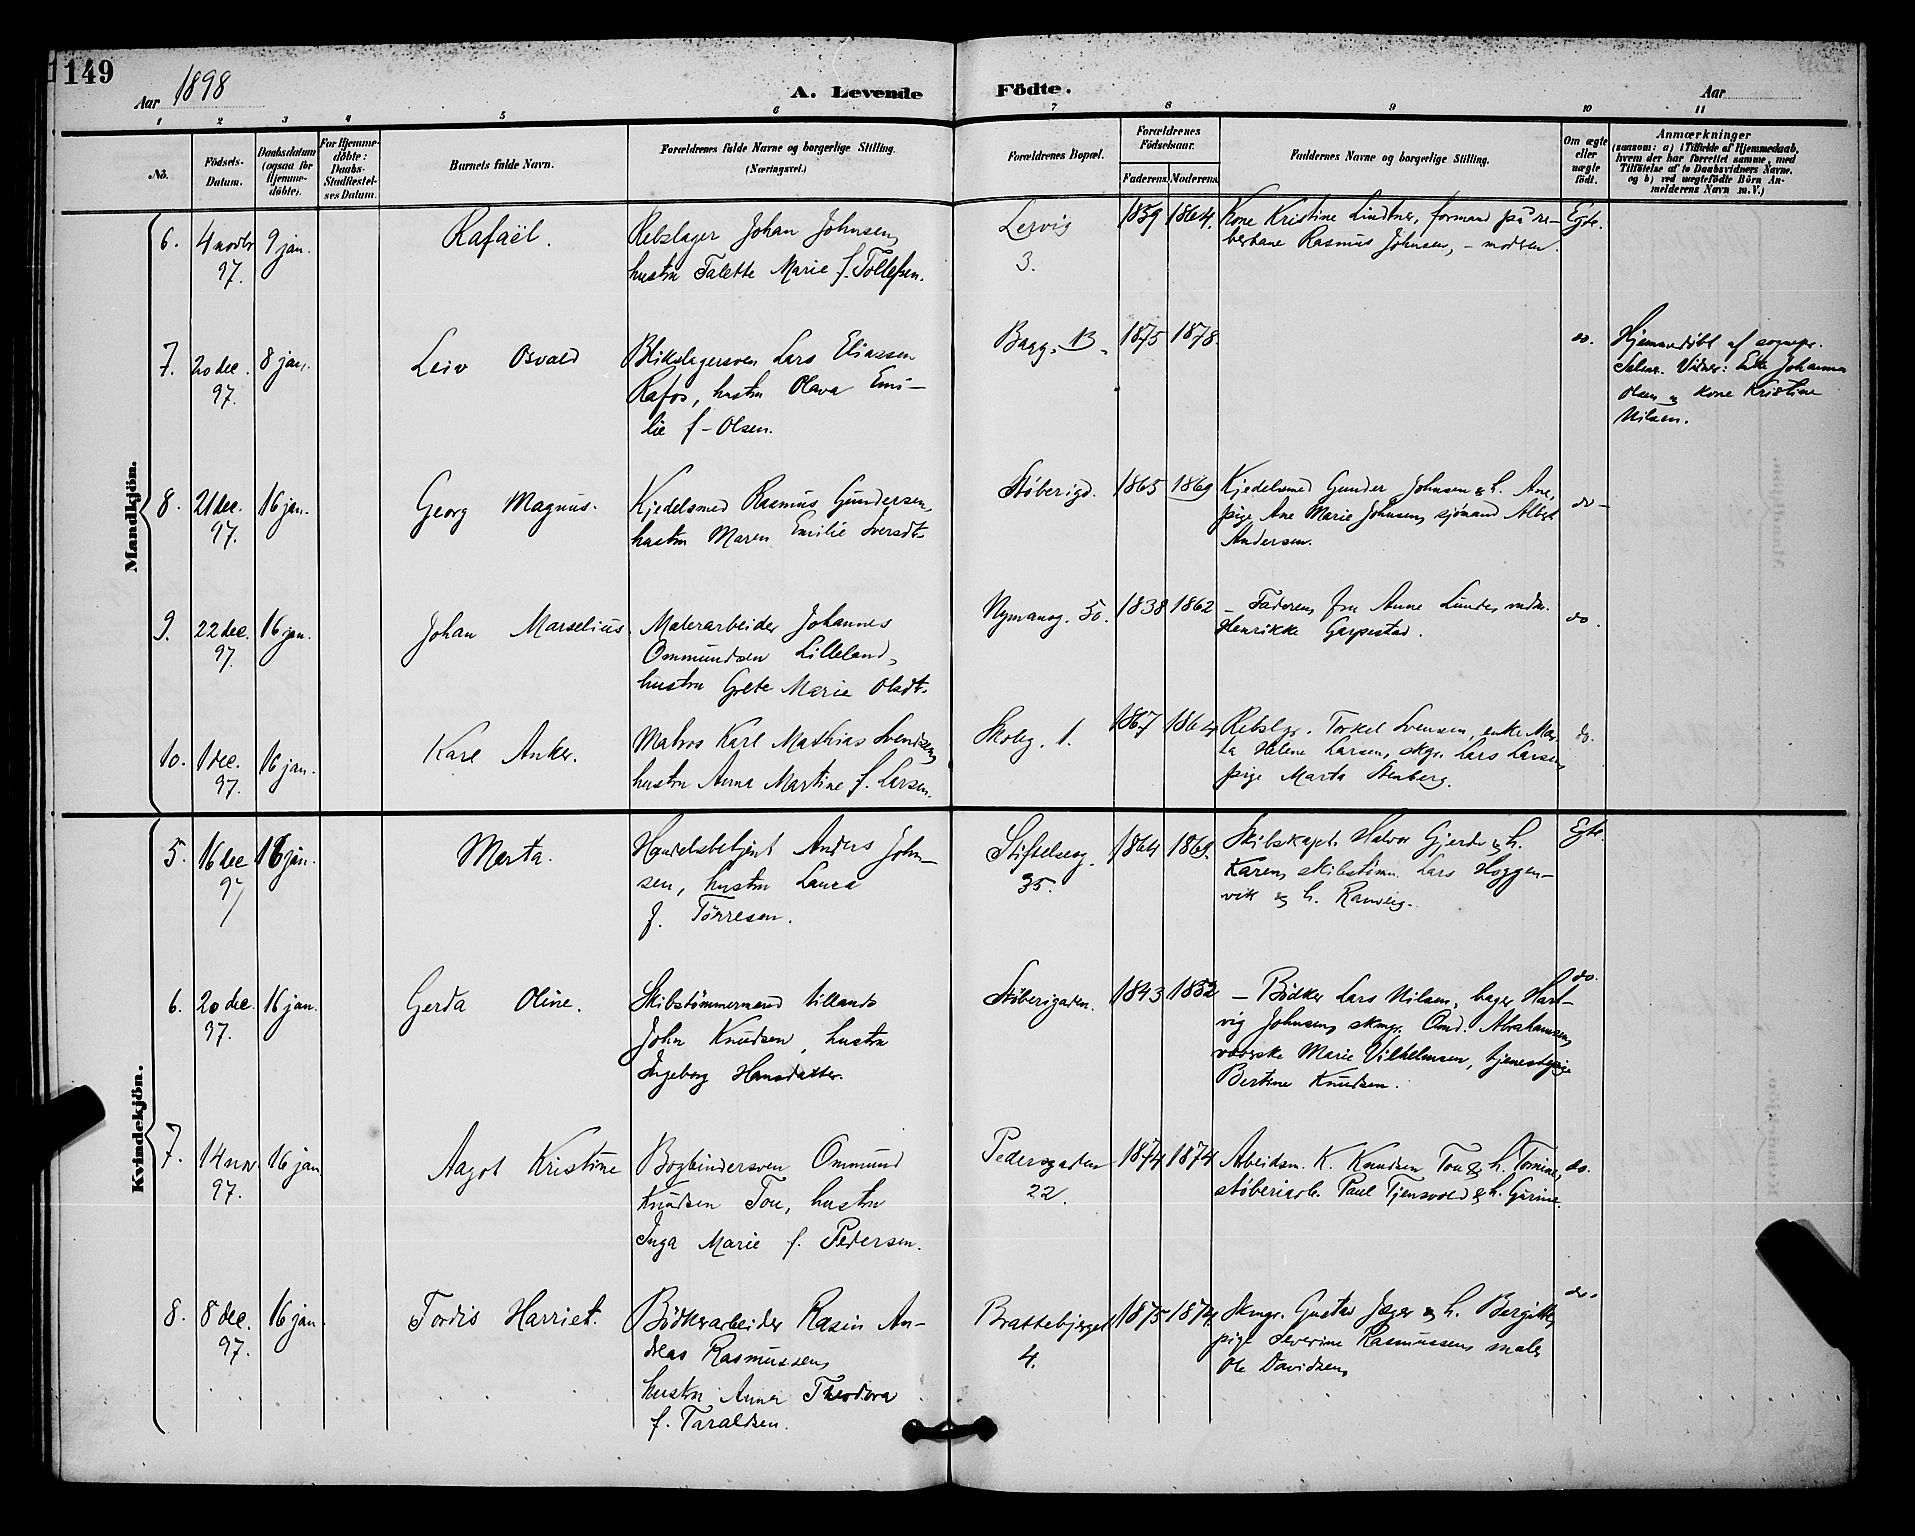 149
Aar 1898
A. Levende
Födte.
Aar
1 2 3 4 5 6 7 8 9 10 11
No.
Födsels-
Datum.
Daabsdatum
(ogsaa for
Hjemme-
døbte).
For Hjemme-
døbte:
Daabs-
Stadfæstel-
ses Datum.
Barnets fulde Navn.
Forældrenes fulde Navne og borgerlige Stilling.
(Næringsvei.)
Forældrenes Bopæl.
Forældrenes
Födselsaar.
Faderens. Moderens.
Faddernes Navne og borgerlige Stilling.
Om ægte
eller
uægte
født.
Anmærkninger
(saasom: a) i Tilfælde af Hjemmedaab,
hvem der har forrettet samme, med
Tilføielse af to Daabsvidners Navne.
og b) ved uægtefødte Börn An-
melderens Navn m. V.)
Mandkjön.
6.
4 novbr
97.
9 jan.
Rafaël.
Rebslager Johan Johnsen,
hustru Talette Marie f. Tollefsen.
Lervig
3.
1859 1864.
Kone Kristine Lindtner, formand på re-
berbane Rasmus Johnsen, - moderen.
Egte.
7.
20 dec.
97.
8 jan.
Leiv Osvald
Blikslagersven Lars Eliassen
Rafos, hustru Olava Emi-
lie f. Olsen.
Berg. 13.
1875 1878.
do.
Hjemmedøbt af sognepr.
Vidner: Enke Johanna
Olsen og Kone Kristine
Nilsen.
8.
21 dec.
97.
16 jan.
Georg Magnus.
Kjedelsmed Rasmus Gundersen,
hustru Maren Emilie Sversdt.
Støberigd.
1865 1869
Kjedelsmed Gunder Johnsen & h. Ane,
pige Ane Marie Johnsen, sjömand Albert
Andersen.
do-
9.
22 dec.
97.
16 jan.
Johan Marselius.
Malerarbeider Johannes
Ommundsen Lilleland,
hustru Grete Marie Olsdt.
Nymansg. 50.
1838 1862
- Faderen, fru Anne Lunde,
Henrikke Garpestad.
do.
10.
1 dec.
97.
16 jan.
Karl Anker.
Matros Karl Mathias Svendsen,
hustru Anna Martine f. Larsen.
Skoleg. 1.
1867 1864
Rebslgr. Torkel Svensen, enke Mar-
ta Helene Larsen, skgr. Lars Larsen,
pige Marta Stenberg.
do.
Kvindekjön.
5.
16 dec
97
16 jan.
Marta.
Handelsbetjent Anders John-
sen, hustru Laura
f. Törresen.
Stiftelsesg.
35.
1864 1869.
Skibskapt. Halvor Gjerde & h.
Karen, skibstømm. Lars Hoggen-
vik & h. Ranveig.
Egte.
6.
20 dec.
97.
16 jan.
Gerda Oline.
Skibstömmermand Villands
John Knudsen, hustru
Ingeborg Hansdatter.
Støberigaden.
1843 1852
- Bødker Lars Nilsen, bager Hart-
vig Johnsen, skmgr. Omd. Abrahamsen,
væverske Marie Vilhelmsen, tjenestepige
Bertine Knudsen.
do.
7.
14 nov
97.
16 jan
Aagot Kristine
Bogbindersven Ommund
Knudsen Tou, hustru
Inga Marie f. Pedersen.
Pedersgaden
22.
1874 1874
Arbeidsm. K. Knudsen Tou & h. Tomine,
støberiarb. Paul Tjensvold & h. Gurine.
do.
8.
8 dec.
97.
16 jan.
Tordis Harriet.
Bödkerarbeider Rasin An-
dreas Rasmussen,
hustru Anna Theodora
f. Taraldsen.
Brattebjerget
4.
1875 1874
Skmgr. Gustav Jæger & h. Bergitte,
pige Severine Rasmussen, maler
Ole Davidsen,
do.